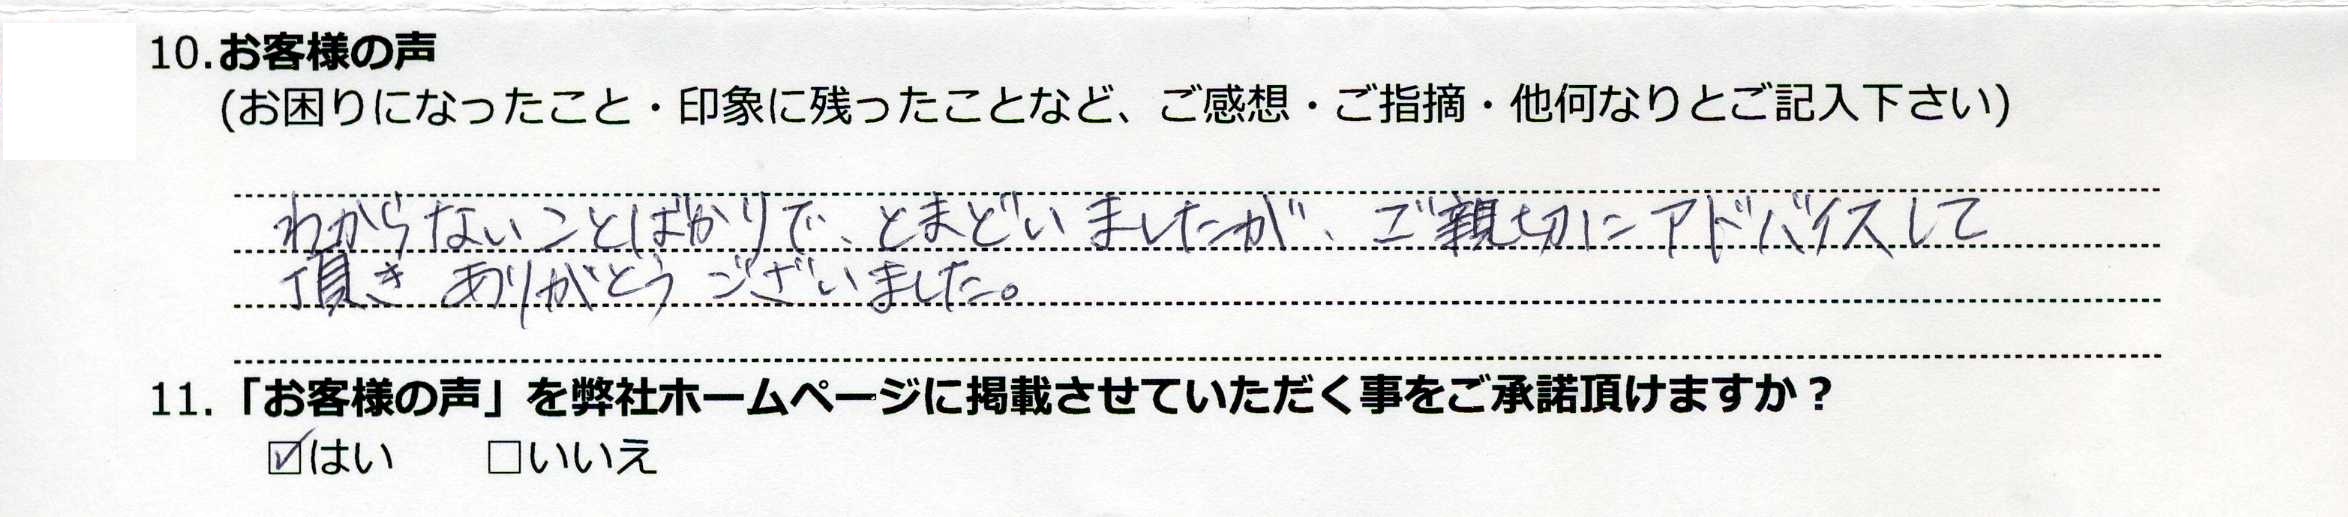 10.お客様の声
(お困りになったこと・印象に残ったことなど、ご感想・ご指摘・他何なりとご記入下さい)
わからないことばかりで、とまどいましたが、ご親切にアドバイスして
頂きありがとうございました。
11.「お客様の声」を弊社ホームページに掲載させていただく事をご承諾頂けますか？
☑はい □いいえ